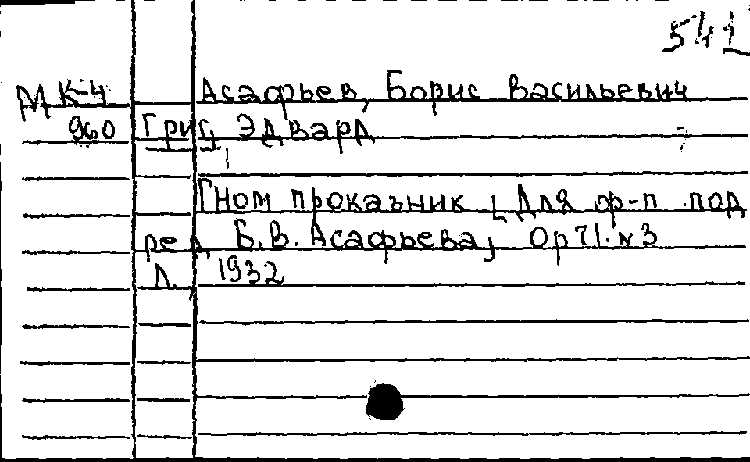 541
МК-4 Асафьев, Борис Васильевич
960 Григ, Эдвард
Гном проказник [Для ф-п под
ред. Б.В. Асафьева] Op 71. №3
Л., 1932